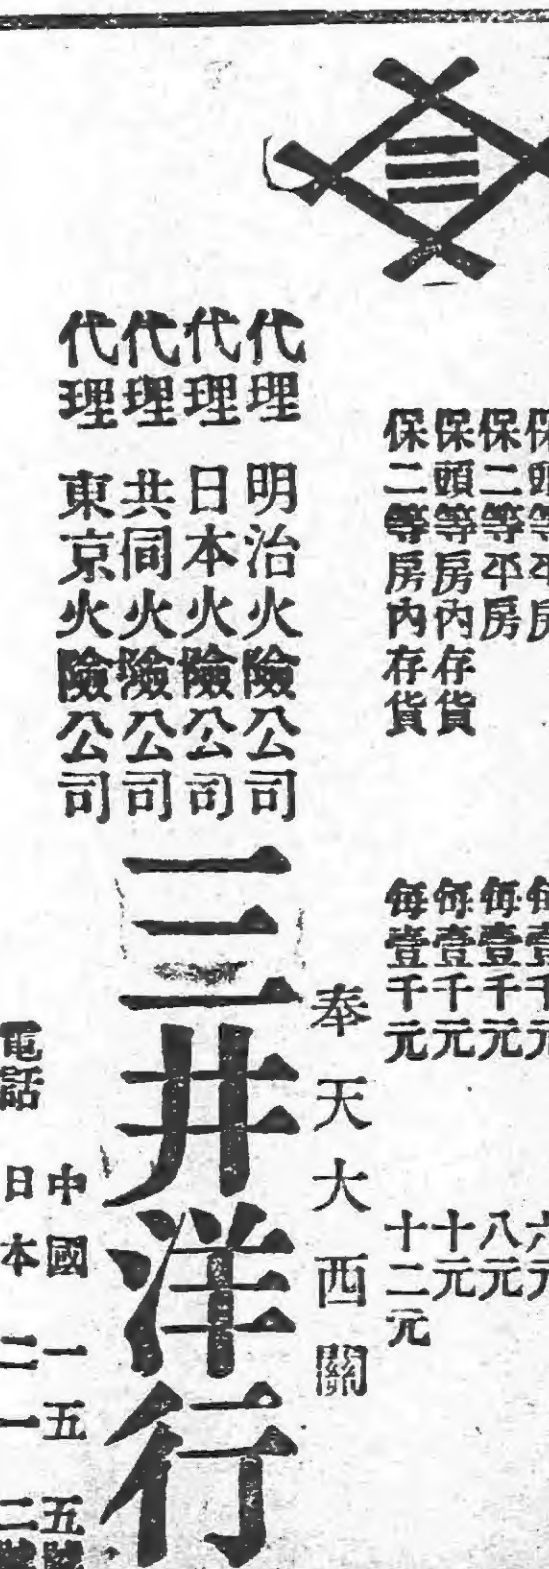 保頭等平房 每壹千元 六元
保二等平房 每壹千元 八元
保頭等房內存貨 每壹千元 十元
保二等房內存貨 每壹千元 十二元
奉天大西關
代理 明治火險公司
代理 日本火險公司
代理 共同火險公司
代理 東京火險公司
三井洋行
電話
中國 一五五號
日本 二一二號